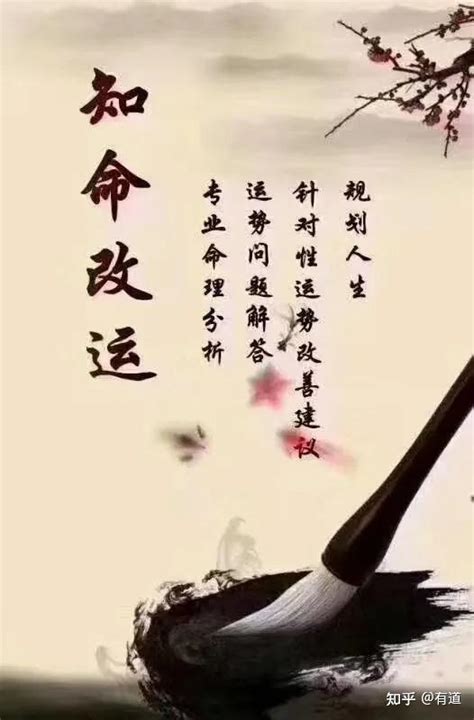 知命改运
规划人生
针对性运势改善建议
运势问题解答
专业命理分析
知乎 @有道